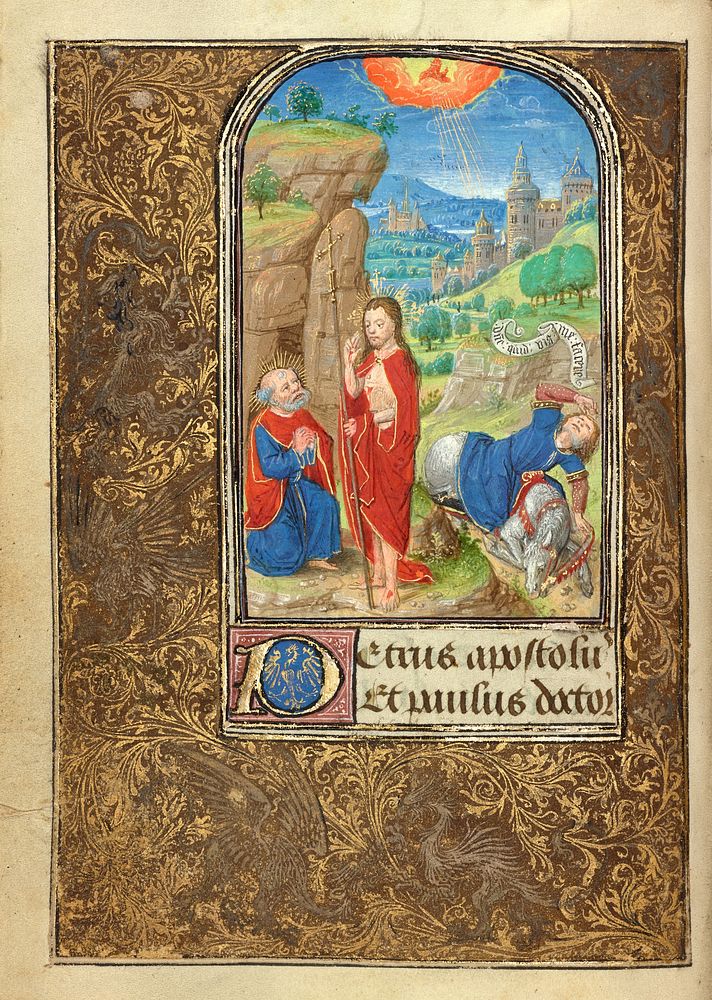 Dne quid vis
me facere
Petrus apostolu
Et paulus doctor